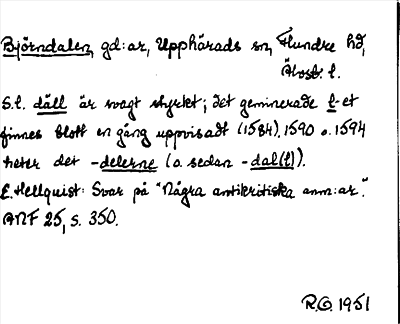 Björndalen, gd:ar, Upphärads sn, Flundre hd,
Älvsb. l.
S.l. däll är svagt styrket; det geminerade l-et
finnes blott en gång uppvisadt (1584). 1590 o. 1594
heter det -delerne (o. sedan -dal(l)).
E. Hellquist: Svar på "Några antikritiska anm:ar".
ANF 25, s. 350.
R.G. 1951